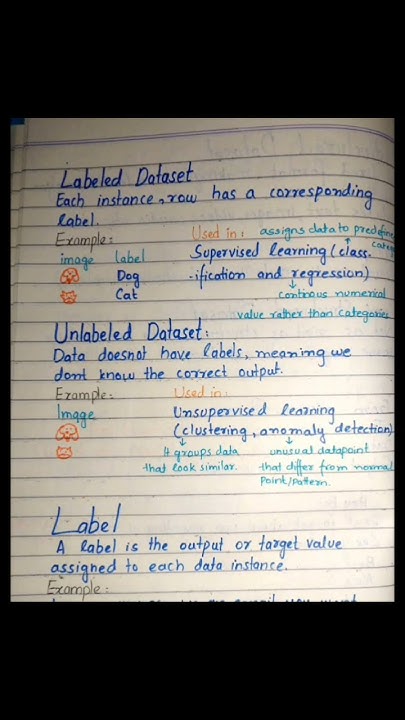 Labeled Dataset
Each instance, row has a corresponding
label.
Example:
Used in: assigns data to predefine
image label
Supervised learning (class.
categ
Dog
-ification and regression)
Cat
continous numerical
value rather than categories
Unlabeled Dataset:
Data doesnot have labels, meaning we
dont know the correct output.
Example:
Used in:
Image
Unsupervised learning
(clustering, anomaly detection)
it groups data unusual datapoint
that look similar. that differ from normal
point/pattern.
Label
A label is the output or target value
assigned to each data instance.
Example: